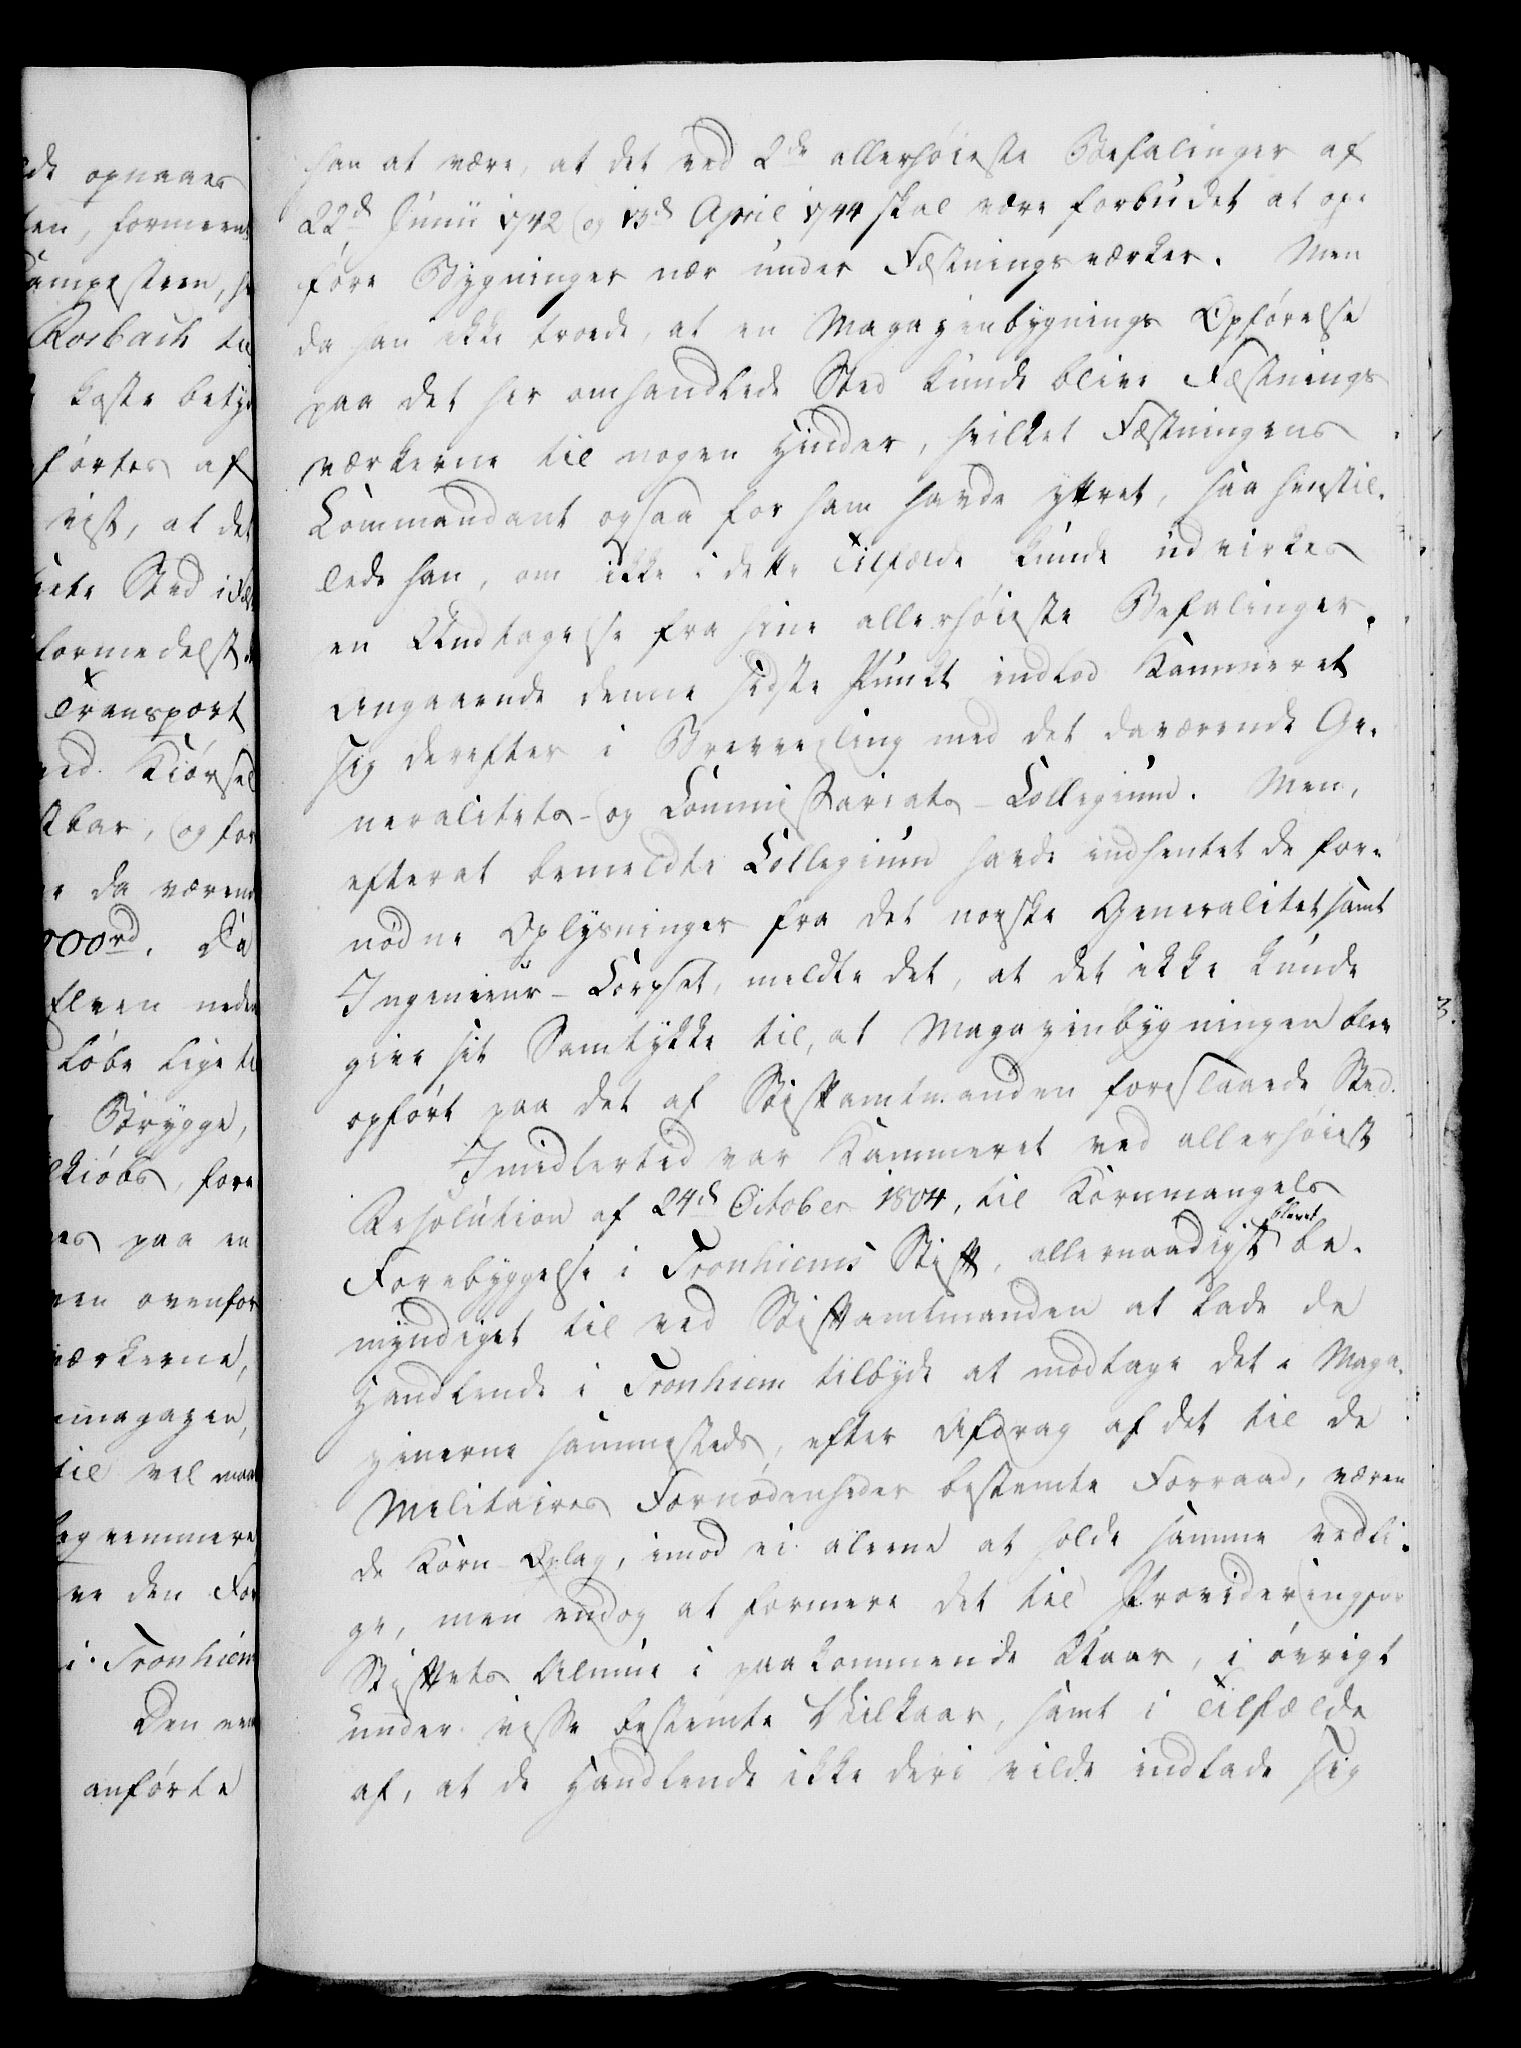 de opnaaes
ten, formeent
Kampesteen, h
Rosbach til
koste bety
førtes af
vist, at det
Sted i
formedelst
Transport
ved Kiørsel
tbar, og for
da væren
700rd. Da
Elven neden
løbe lige ti
Brygge,
lkiøbs, fore
nes paa en
men ovenfor
værkerne,
magazen,
til vel maa
beqvemmere
ve den For
i Tronhiem
Den
anførte
han at være, at det ved 2de allerhøieste Befalinger af
22d Junii 1742 og 13d April 1744 skal være forbudet at op-
føre Bygninger nær under Fæstningsværker. Men
da han ikke troede, at en Magazinbygnings Opførelse
paa det her omhandlede Sted kunde blive Fæstnings
værkerne til nogen Hinder, hvilket Fæstningens
Commandant ogsaa for ham havde yttret, saa henstil-
lede han, om ikke i dette Tilfælde kunde udvirkes
en Undtagelse fra hine allerhøieste Befalinger.
Angaaende denne sidste Punct indlod Kammeret
sig derefter i Brevvexling med det daværende Ge-
neralitets- og Commissariats-Collegium. Men,
efterat bemeldte Collegium havde indhentet de for-
nødne Oplysninger fra det norske Generalitet samt
Ingenieur-Corpset, meldte det, at det ikke kunde
give sit Samtykke til, at Magazinbygningen blev
opført paa det af Stiftamtmanden foreslaaede Sted.
Imidlertid var Kammeret ved allerhøiest
Resolution af 24d October 1804, til Kornmangels
Forebyggelse i Tronhiems Stift, allernaadigst blevet be-
myndiget til ved Stiftamtmanden at lade de
Handlende i Tronhiem tilbyde at modtage det i Maga-
zinerne sammesteds, efter Afdrag af det til de
Militaires Fornødenheder bestemte Forraad, væren
de Korn-Oplag, imod ei alene at holde samme vedli-
ge, men endog at formere det til Providering for
Stiftets Almue i paakommende Uaar, i øvrigt
under visse bestemte Vilkaar, samt i Tilfælde
af, at de Handlende ikke deri vilde indlade sig
3.